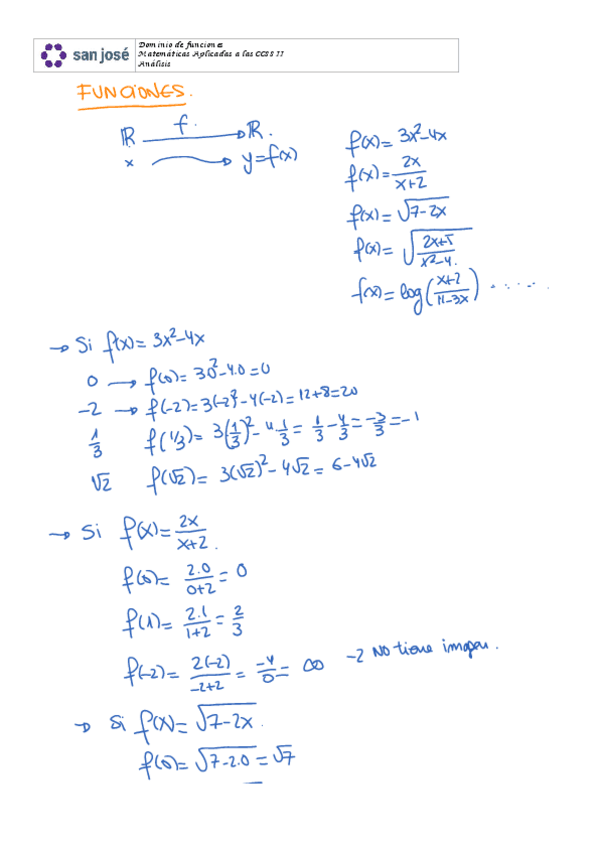 san josé
Dominio de funciones
Matemáticas Aplicadas a las CCSS II
Análisis
FUNCIONES.
ℝ f ⟶ ℝ.
x ⟶ y=f(x)
f(x)= 3x²-4x
f(x)= 2x/(x+2)
f(x)= √(7-2x)
f(x)= √((2x+5)/(x²-4))
f(x)= log((x+2)/(11-3x)) ......
→ Si f(x)= 3x²-4x
0 → f(0)= 3·0²-4·0=0
-2 → f(-2)=3(-2)²-4(-2)=12+8=20
1/3 f(1/3)= 3(1/3)²-4·1/3= 1/3-4/3=-3/3=-1
√2 f(√2)= 3(√2)²-4√2= 6-4√2
→ Si f(x)= 2x/(x+2).
f(0)= 2·0/(0+2)= 0
f(1)= 2·1/(1+2)= 2/3
f(-2)= 2(-2)/(-2+2)= -4/0= ∞ -2 NO tiene imagen.
→ Si f(x)= √(7-2x).
f(0)= √(7-2·0)= √7